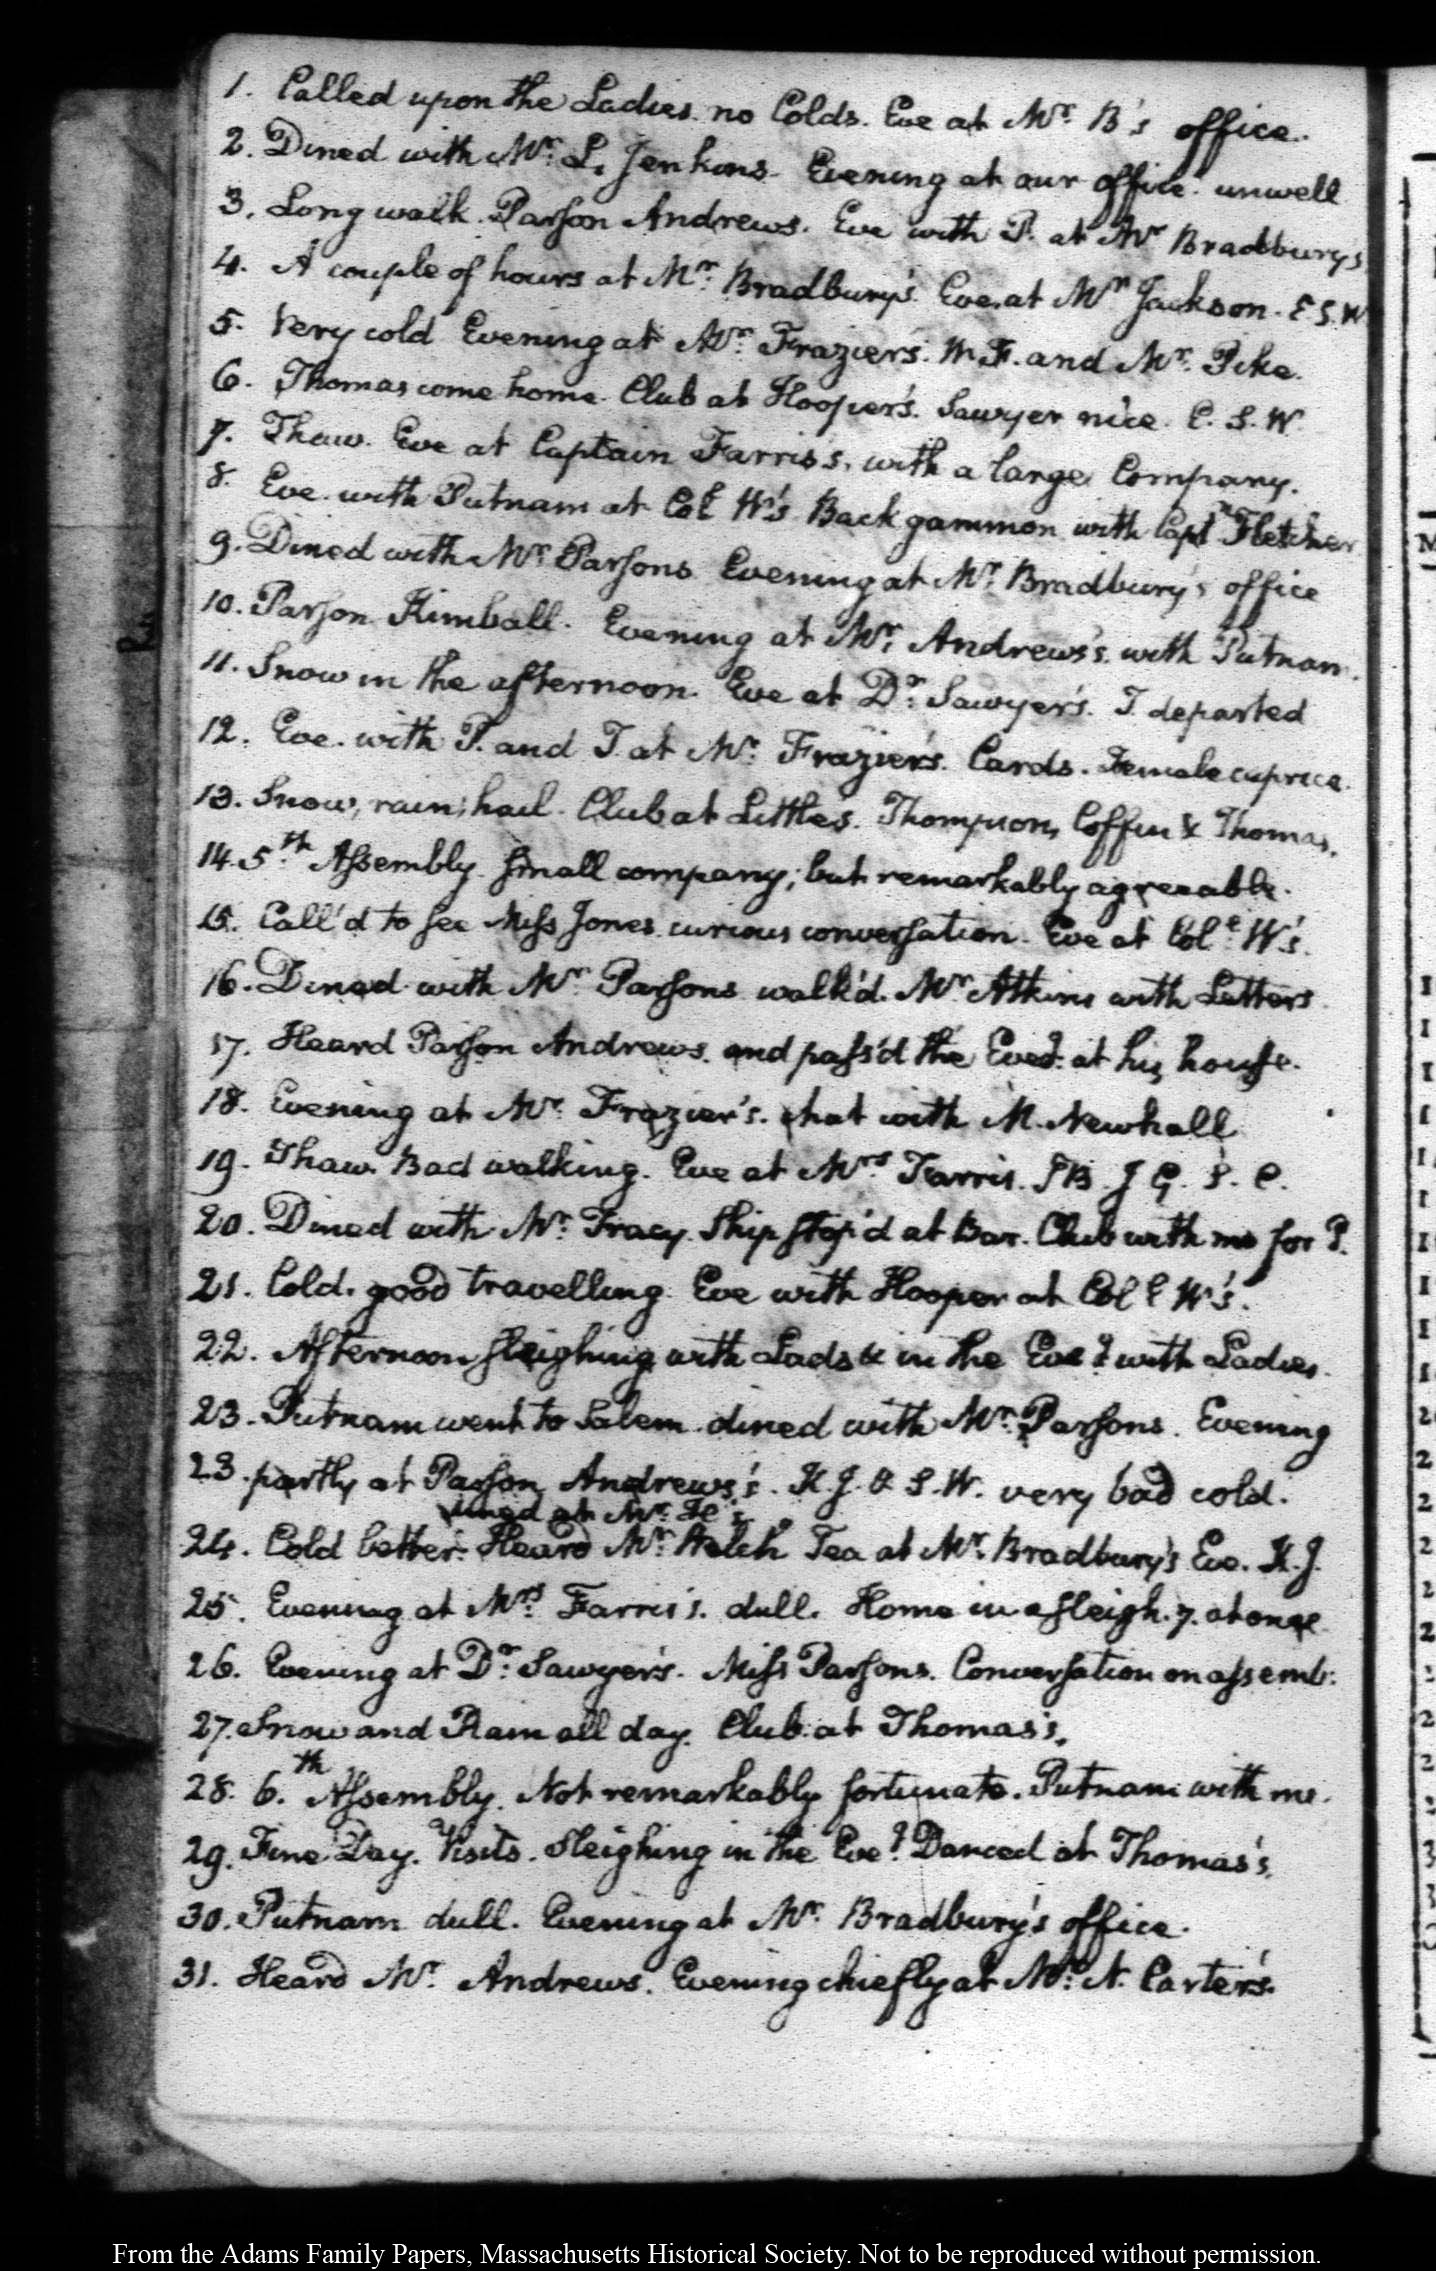 1. Called upon the Ladies. no Colds. Eve at Mr. B's office.
2. Dined with Mr. L. Jenkins. Evening at our office. unwell
3. Long walk. Parson Andrews. Eve with P. at Mr Bradbury's
4. A couple of hours at Mr. Bradbury's. Eve. at Mr Jackson. E S. W
5. Very cold Evening at Mr. Frazier's. M F. and Mr. Pike.
6. Thomas come home. Club at Hooper's. Sawyer nice. C. S. W.
7. Thaw. Eve at Captain Farris's, with a large Company.
8. Eve. with Putnam at Coll W's Backgammon with Captn Fletcher
9. Dined with Mr. Parsons Evening at Mr. Bradbury's office
10. Parson Kimball. Evening at Mr. Andrews's. with Putnam.
11. Snow in the afternoon. Eve at Dr. Sawyer's. T. departed
12. Eve. with P. and T. at Mr. Frazier's. Cards. Female caprice.
13. Snow, rain, hail. Club at Little's. Thompson, Coffin & Thomas.
14. 5th Assembly. small company; but remarkably agreeable.
15. Call'd to see Miss Jones. curious conversation. Eve at Coll. W's.
16. Dined with Mr. Parsons walk'd. Mr. Atkins with Letters
17. Heard Parson Andrews. and pass'd the Eveg. at his house.
18. Evening at Mr. Frazier's. chat with M. Newhall
19. Thaw. Bad walking. Eve at Mrs Farris. J B. J G. S. C.
20. Dined with Mr. Tracy. Ship stop'd at Bar. Club with me for P.
21. Cold. good travelling. Eve with Hooper at Coll W's.
22. Afternoon sleighing with Lads & in the Eveg. with Ladies.
23. Putnam went to Salem. dined with Mr. Parsons. Evening
23. partly at Parson Andrews's. K. J. & S. W. very bad cold.
dined at Mr. H's
24. Cold better. Heard Mr. Welch Tea at Mr. Bradbury's Eve. K. J.
25. Evening at Mrs. Farris's. dull. Home in a sleigh. 7. at once
26. Evening at Dr. Sawyer's. Miss Parsons. Conversation on assemb:
27. Snow and Rain all day. Club at Thomas's.
28. 6.th Assembly. Not remarkably fortunate. Putnam with me.
29. Fine Day. Visits. Sleighing in the Eveg. Danced at Thomas's.
30. Putnam dull. Evening at Mr. Bradbury's office.
31. Heard Mr. Andrews. Evening chiefly at Mr. N. Carter's.
From the Adams Family Papers, Massachusetts Historical Society. Not to be reproduced without permission.